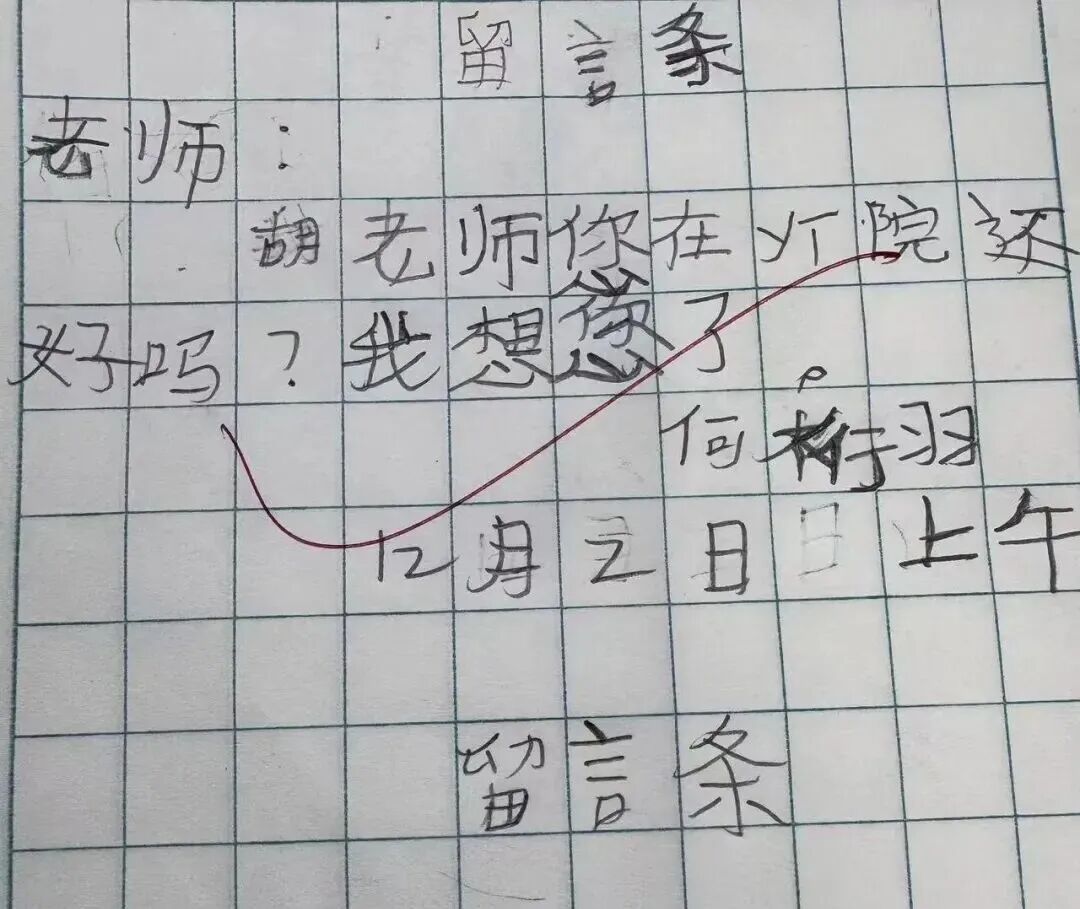 留言条
老师：
胡老师你在院还
好吗？我想您了。
何羽
12月2日上午
留言条